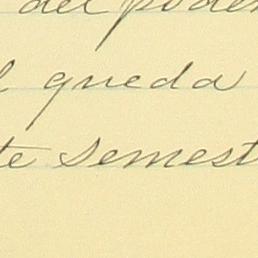 del poder
queda
te semest